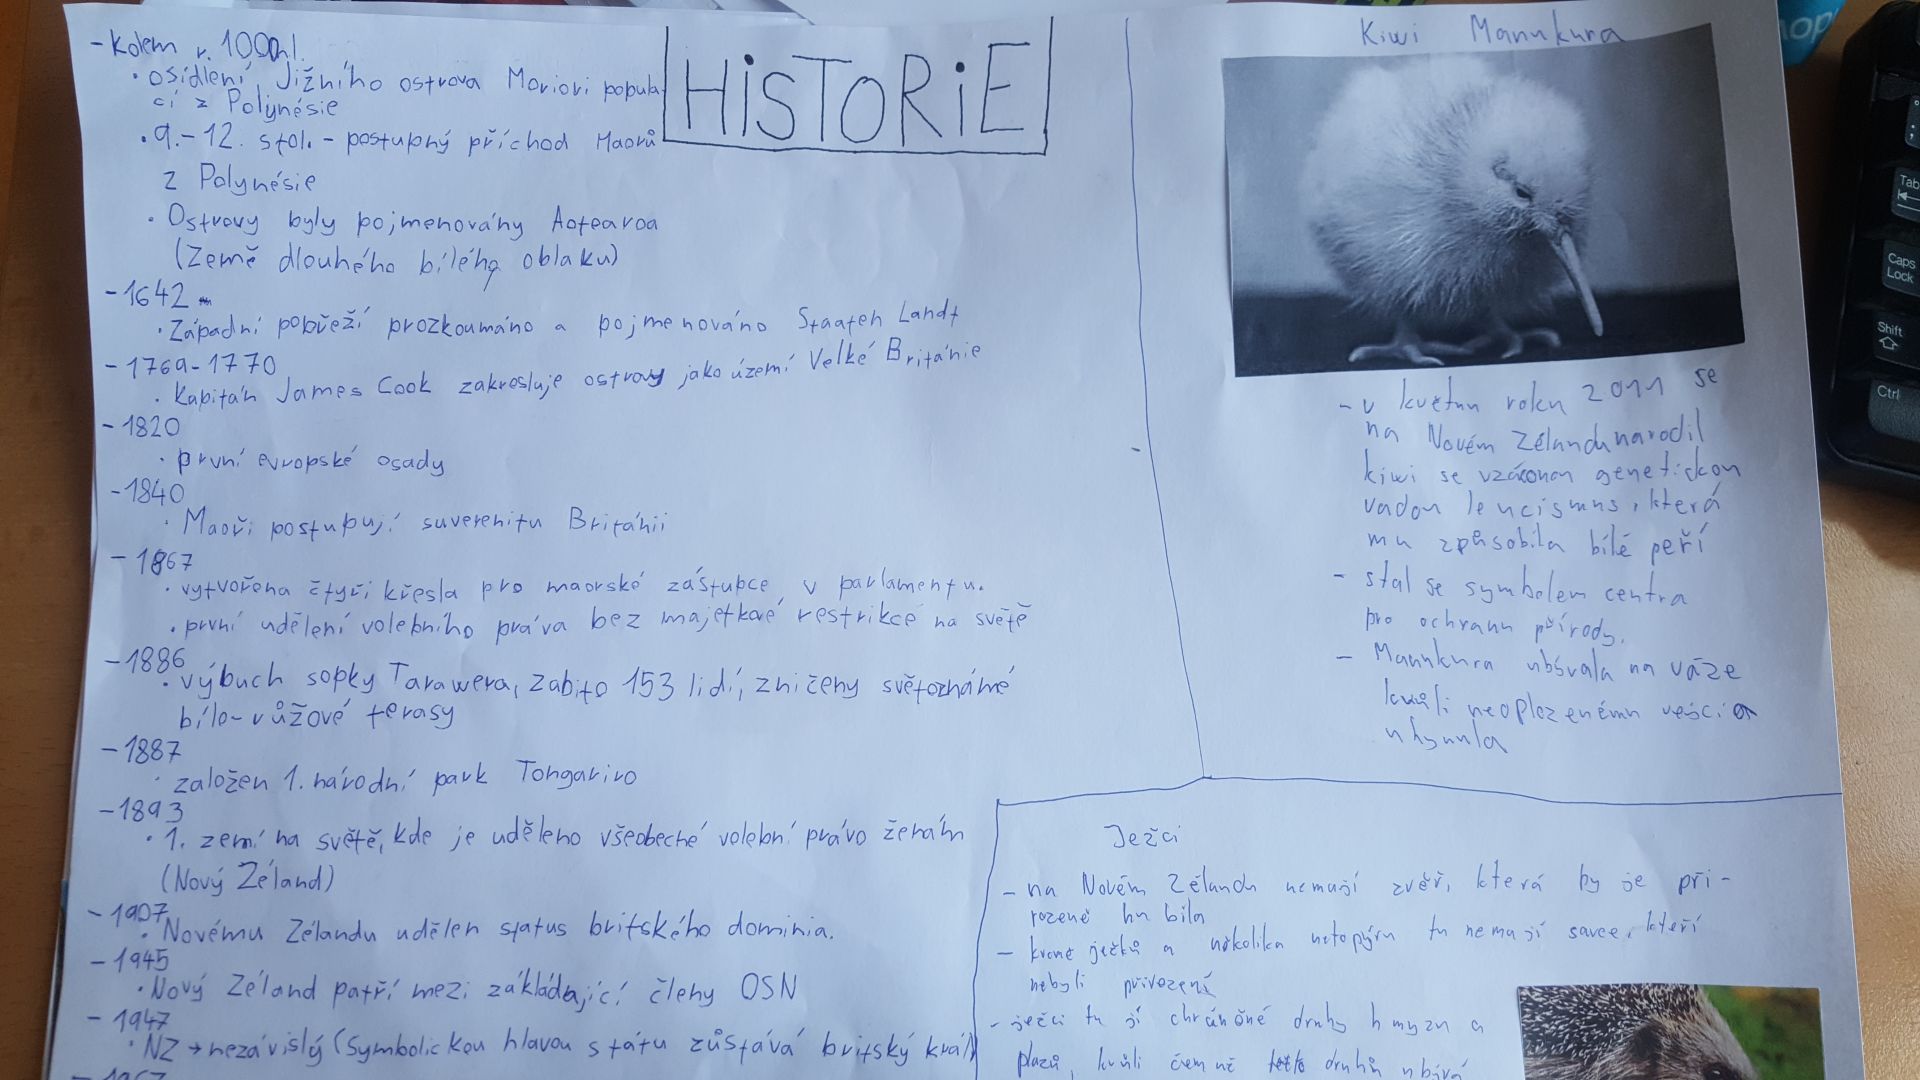 HiSTORiE
- Kolem r. 1000 n.l.
· osídlení Jižního ostrova Moriori popula
cí z Polynésie
· 9.-12. stol. - postupný příchod Maorů
z Polynésie
· Ostrovy byly pojmenovány Aotearoa
(Země dlouhého bílého oblaku)
- 1642
· Západní pobřeží prozkoumáno a pojmenováno Staaten Landt
- 1769-1770
· Kapitán James Cook zakresluje ostrovy jako území Velké Británie
- 1820
· první evropské osady
- 1840
· Maoři postupují suverenitu Británii
- 1867
· vytvořena čtyři křesla pro maorské zástupce v parlamentu.
· první udělení volebního práva bez majetkové restrikce na světě
- 1886
· výbuch sopky Tarawera, zabito 153 lidí, zničeny světoznámé
bílo-růžové terasy
- 1887
· založen 1. národní park Tongariro
- 1893
· 1. zemí na světě, kde je uděleno všeobecné volební právo ženám
(Nový Zéland)
- 1907
· Novému Zélandu udělen status britského dominia.
- 1945
· Nový Zéland patří mezi zakládající členy OSN
- 1947
· NZ → nezávislý (Symbolickou hlavou státu zůstává britský král)
Kiwi Manukura
- v květnu roku 2011 se
na Novém Zélandu narodil
kiwi se vzácnou genetickou
vadou leucismus, která
mu způsobila bílé peří
- stal se symbolem centra
pro ochranu přírody.
- Manukura ubývala na váze
kvůli neoplozenému vejci a
uhynula
Ježci
- na Novém Zélandu nemají zvěř, která by je při-
rozeně hubila
- kromě ježků a několika netopýru tu nemají savce, kteří
nebyli přivezení
- ježci tu jí chráněné druhy hmyzu a
plazů, kvůli čemuž druhů ubývá
Tab
Caps
Lock
Shift
Ctrl